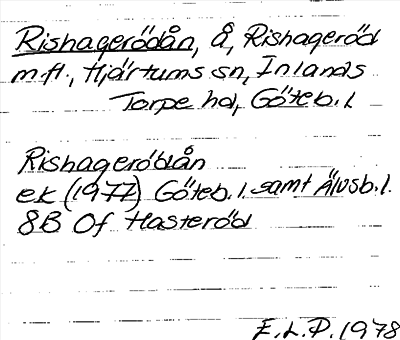 Rishagerödån, Å, Rishageröd
m.fl., Hjärtums sn, Inlands
Torpe hd, Göteb. l.
Rishagerödån
ek (1977) Göteb. l. samt Älvsb. l.
8B 0f Hasteröd
E.L.P. 1978